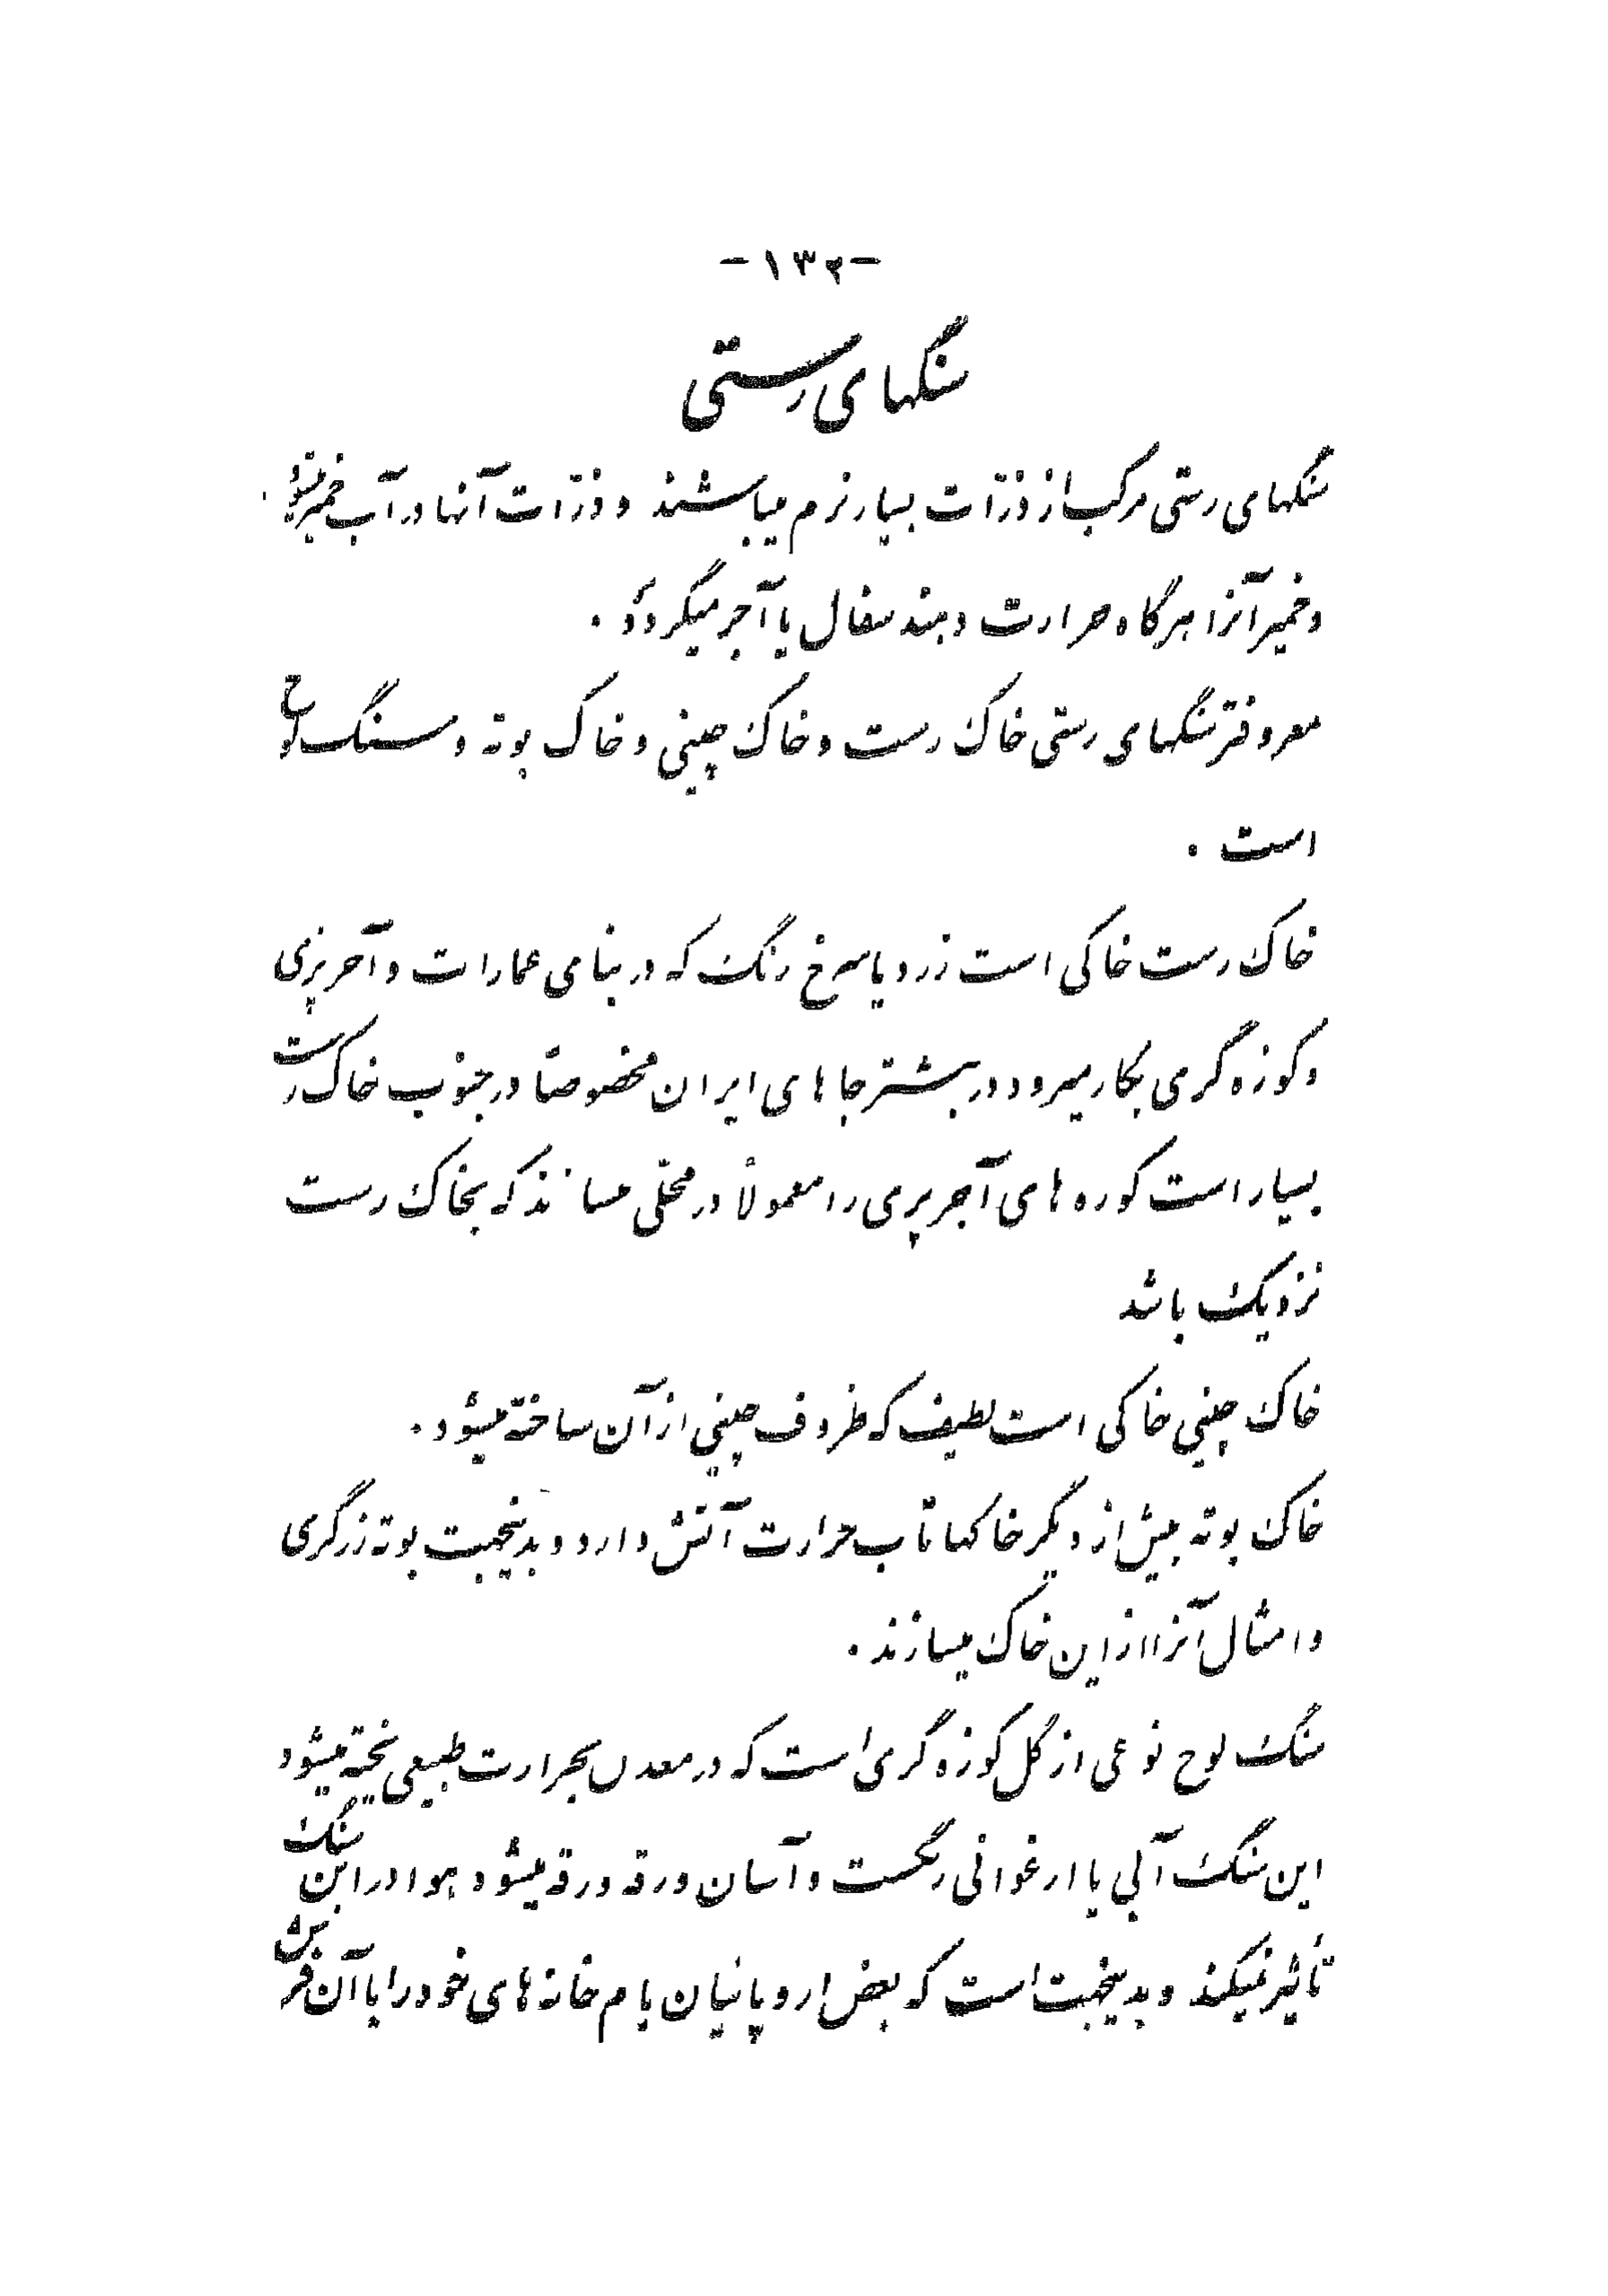 -۱۳۲-
سنگهای رستی
سنگهای رستی مرکب از ذرّات بسیار نرم میباشند و ذرّات آنها در آب خمیر میشود
و خمیر آنرا هرگاه حرارت دهند سفال یا آجر میگردد .
معروفتر سنگهای رستی خاک رست و خاک چینی و خاک بوته و سنگ لوح
است .
خاک رست خاکی است زرد یا سرخ رنگ که در بنای عمارات و آجرپزی
و کوزه گری بکار میرود در بیشتر جا های ایران مخصوصاً در جنوب خاک رست
بسیار است کوره های آجرپزی را معمولاً در محلّی میسازند که بخاک رست
نزدیک باشد
خاک چینی خاکی است لطیف که ظروف چینی از آن ساخته میشود .
خاک بوته بیش از دیگر خاکها تاب حرارت آتش دارد و بدینجهت بوته زرگری
و امثال آنرا از این خاک میسازند .
سنگ لوح نوعی از گل کوزه گری است که در معدن بحرارت طبیعی پخته میشود
این سنگ آبی یا ارغوانی رنگست و آسان ورقه ورقه میشود هوا در این سنگ
تأثیر نمیکند و بدینجهت است که بعض اروپائیان بام خانه های خود را با آن فرش